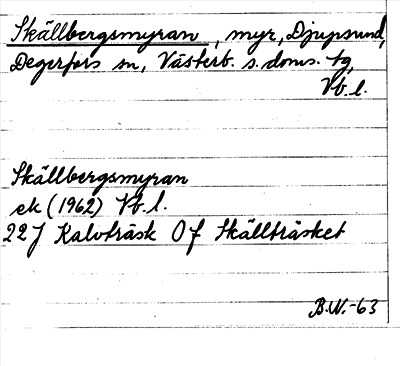 Skällbergsmyran, myr, Djupsund,
Degerfors sn, Västerb. s. doms. tg,
Vb. l.
Skällbergsmyran
ek (1962) Vb. l.
22J Kalvträsk Of Skällträsket
B.W.-63